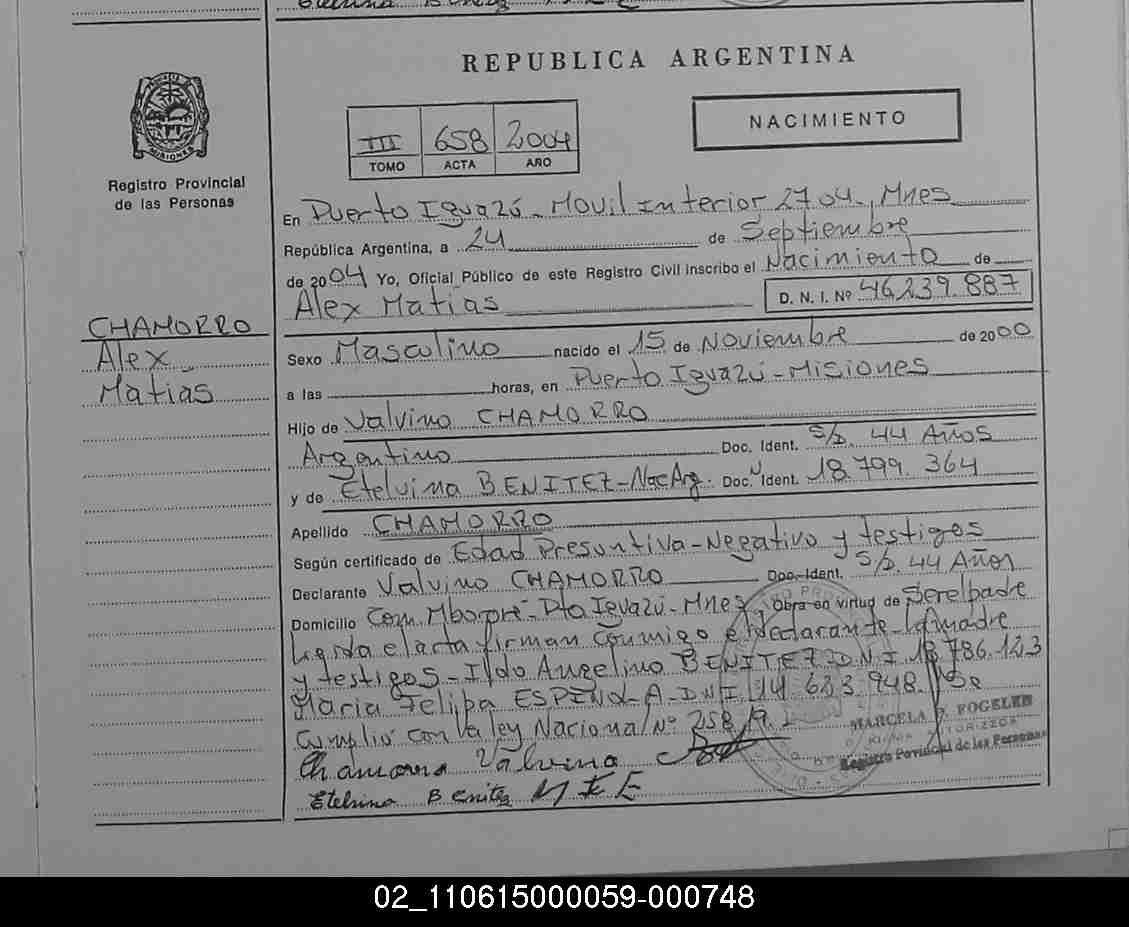 Etelvina Benitez
REPUBLICA ARGENTINA
MISIONES
Registro Provincial
de las Personas
III 658 2004
TOMO ACTA AÑO
NACIMIENTO
En Puerto Iguazú - Movil Interior 27 04., Mnes
República Argentina, a 24 de Septiembre
de 2004 Yo, Oficial Público de este Registro Civil inscribo el Nacimiento de
Alex Matias D. N. I. Nº 46.239.887
CHAMORRO
Alex
Matias
Sexo Masculino nacido el 15 de Noviembre de 2000
a las horas, en Puerto Iguazú - Misiones
Hijo de Valvino CHAMORRO
Argentino Doc. Ident. S/D. 44 Años
y de Etelvina BENITEZ - Nac Arg. Doc. Ident. 18.799.364
Apellido CHAMORRO
Según certificado de Edad Presuntiva - Negativo y testigos
Declarante Valvino CHAMORRO Doc. Ident. S/D. 44 Años
Domicilio Com. Mbororé - Pto Iguazú - Mnes. Obra en virtud de Ser el padre
Leida el acta firman conmigo el declarante - la madre
y testigos - Ildo Angelino BENITEZ D.N.I. 18.786.123
Maria Felipa ESPINOLA - D.N.I. 14.633.948. Se
Cumplió con la ley Nacional Nº 258/9.
Chamorro Valvino
Etelvina Benitez M F E
MARCELA FOGELER
Registro Provincial de las Personas
02_110615000059-000748